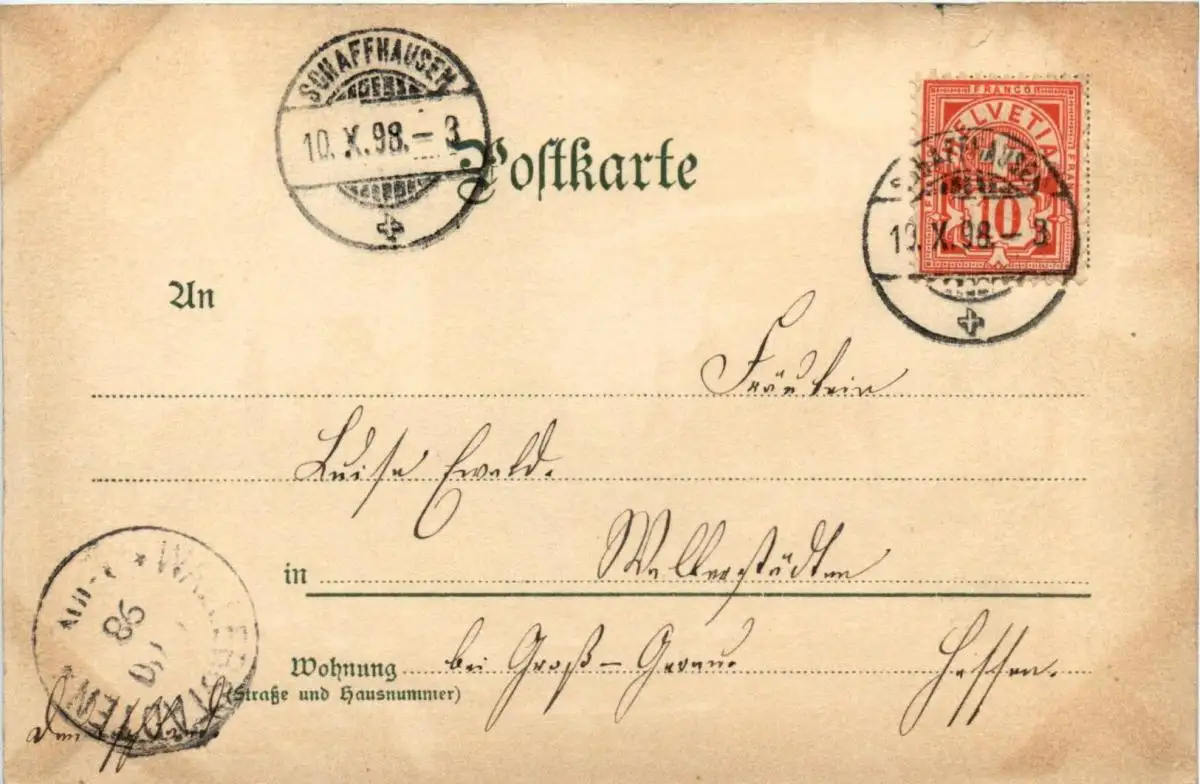 SCHAFFHAUSEN
10. X. 98. – 3
Postkarte
FRANCO
HELVETIA
10
SCHAFFHAUSEN
10. X. 98. – 3
An
Fräulein
Luise Ewald.
in Wallerstädten
WALLERSTÄDTEN
98
Wohnung bei Groß-Gerau. Hessen.
(Straße und Hausnummer)